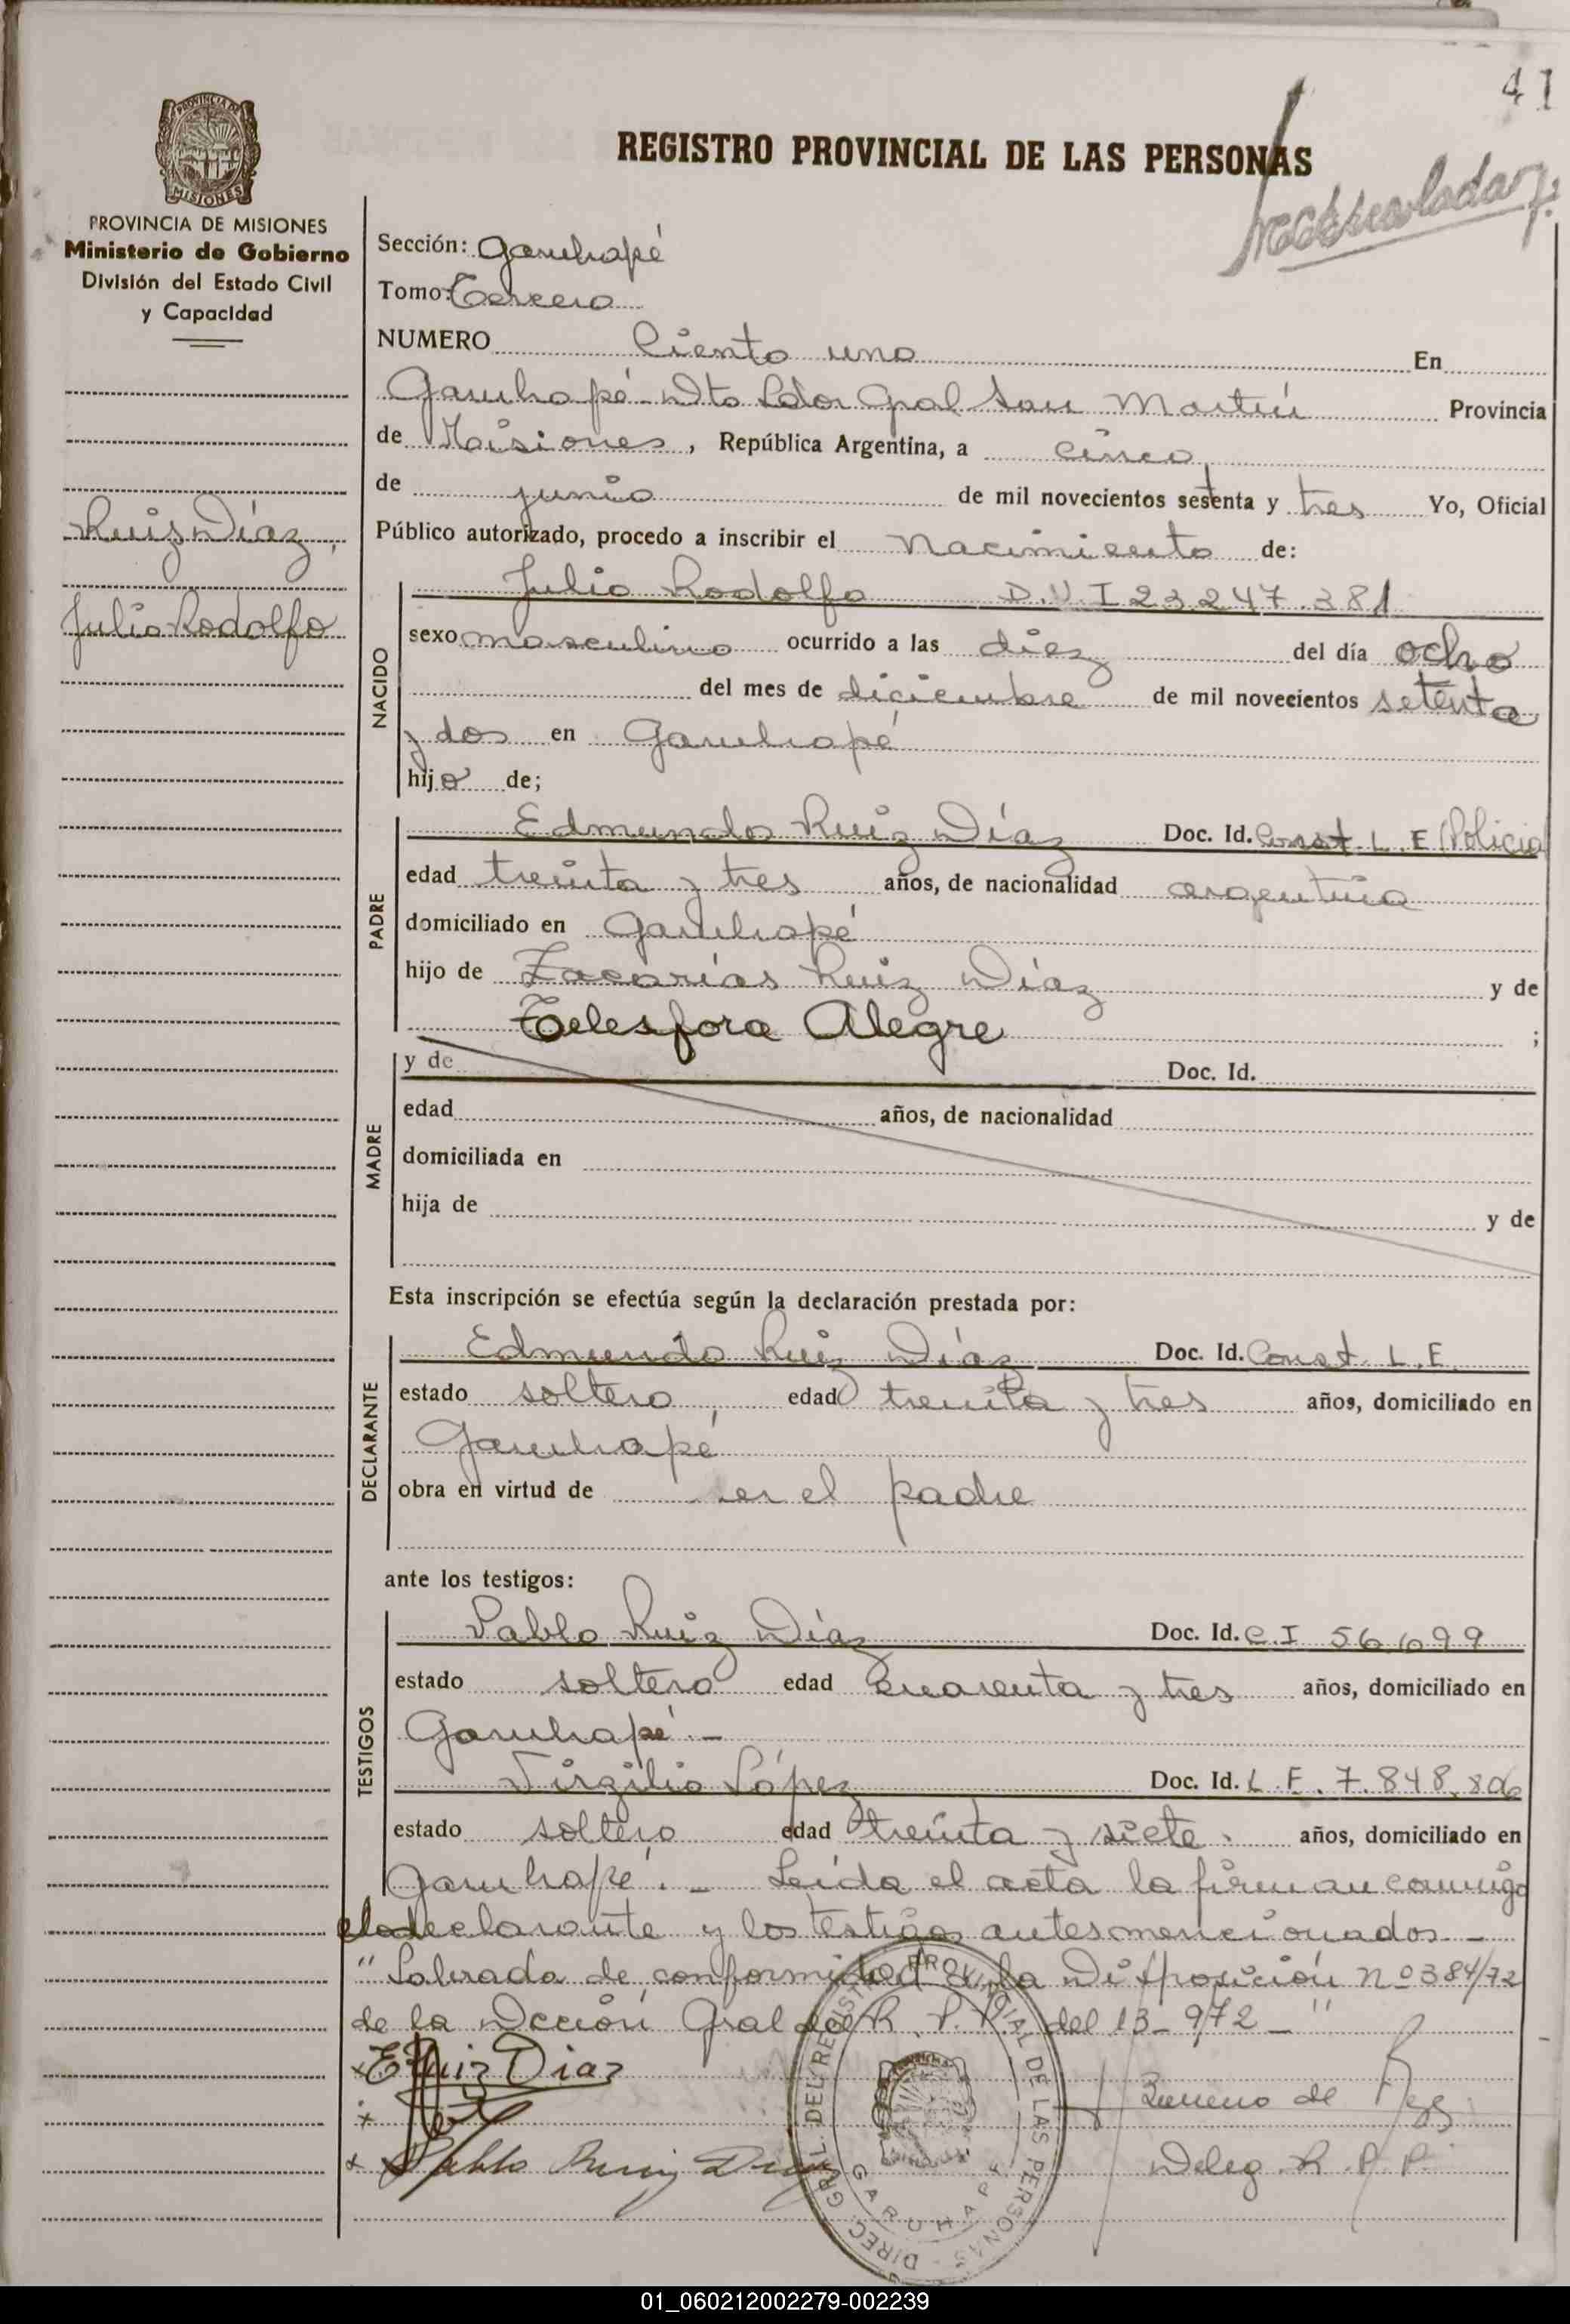 41
REGISTRO PROVINCIAL DE LAS PERSONAS
PROVINCIA DE MISIONES
MISIONES
PROVINCIA DE MISIONES
Ministerio de Gobierno
División del Estado Civil
y Capacidad
Ruiz Díaz,
Julio Rodolfo
Sección: Garuhapé
Tomo: Tercero
NUMERO Ciento uno En
Garuhapé - Dto Ldor Gral San Martín Provincia
de Misiones, República Argentina, a cinco
de junio de mil novecientos setenta y tres Yo, Oficial
Público autorizado, procedo a inscribir el nacimiento de:
NACIDO
Julio Rodolfo D.N.I 23.247.381
sexo masculino ocurrido a las diez del día ocho
del mes de diciembre de mil novecientos setenta
y dos en Garuhapé
hijo de;
PADRE
Edmundo Ruiz Díaz Doc. Id. Const. L.E Policia
edad treinta y tres años, de nacionalidad argentina
domiciliado en Garuhapé
hijo de Zacarías Ruiz Díaz y de
Telesfora Alegre ;
MADRE
y de Doc. Id.
edad años, de nacionalidad
domiciliada en
hija de y de
Esta inscripción se efectúa según la declaración prestada por:
DECLARANTE
Edmundo Ruiz Díaz Doc. Id. Const. L.E.
estado soltero, edad treinta y tres años, domiciliado en
Garuhapé
obra en virtud de ser el padre
ante los testigos:
TESTIGOS
Pablo Ruiz Díaz Doc. Id. C.I 56.699
estado soltero edad cuarenta y tres años, domiciliado en
Garuhapé. -
Virgilio López Doc. Id. L.E. 7.848.806
estado soltero edad treinta y siete. años, domiciliado en
Garuhapé. - Leída el acta la firman conmigo
el declarante y los testigos antes mencionados -
"Labrada de conformidad a la Disposición Nº 384/72
de la Dcción Gral del R.P.P. del 13-9/72 - "
x E Ruiz Diaz
x
x Pablo Ruiz Diaz
Deleg. R.P.P.
DIREC. GRAL. DEL REGISTRO PROVINCIAL DE LAS PERSONAS
GARUHAPE
01_060212002279-002239